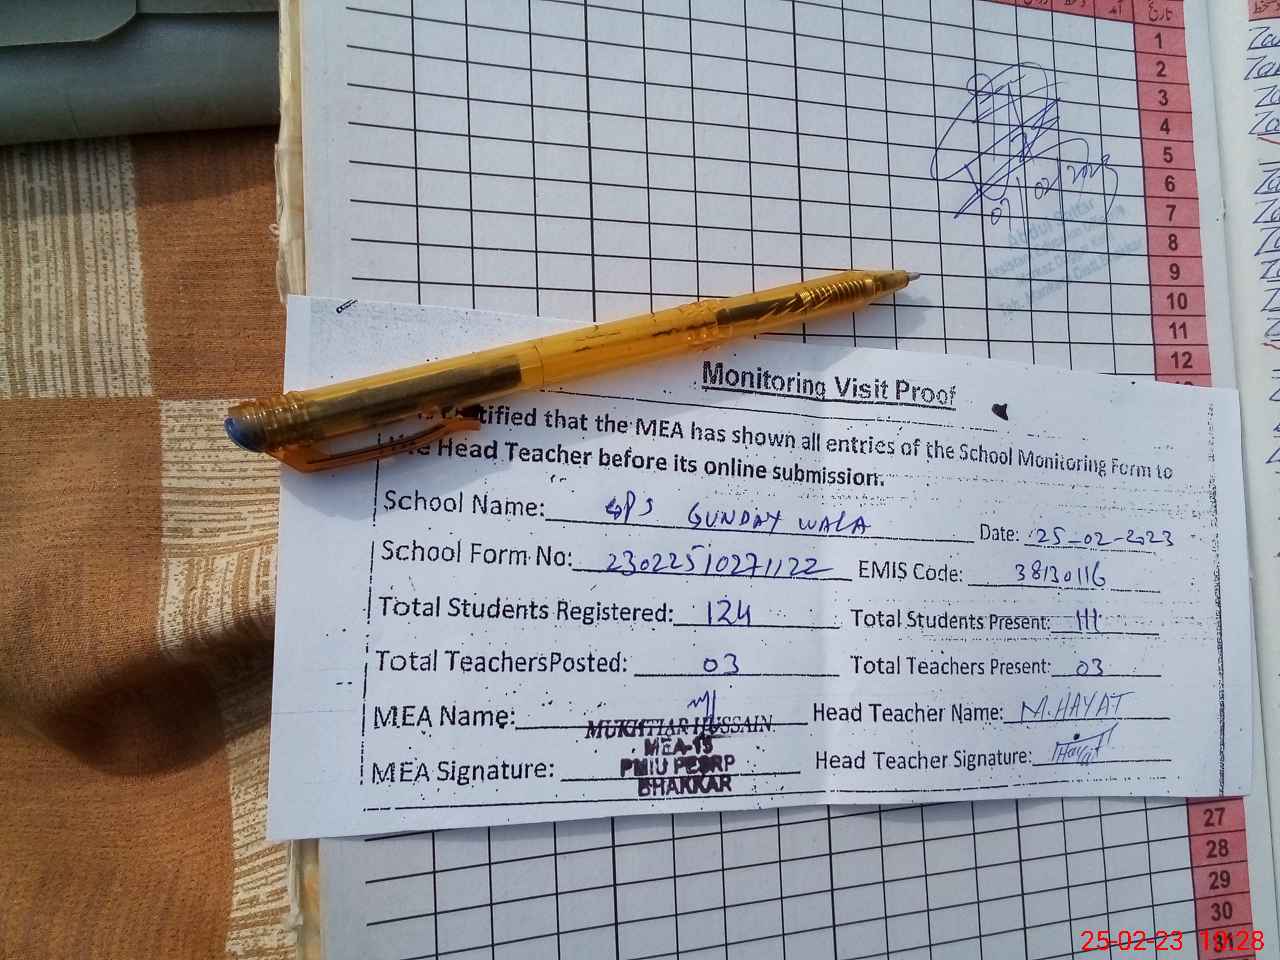 تاریخ
1
2
3
4
5
6
7
8
9
10
11
12
07/02/2023
Abdul Sattar
Assistant Education Officer
Monitoring Visit Proof
certified that the MEA has shown all entries of the School Monitoring Form to
the Head Teacher before its online submission.
School Name: GPS GUNDAY WALA Date: 25-02-2023
School Form No: 23022510271122 EMIS Code: 38130116
Total Students Registered: 124 Total Students Present: 111
Total TeachersPosted: 03 Total Teachers Present: 03
MEA Name: MUKHTIAR HUSSAIN Head Teacher Name: M.HAYAT
MEA-15
PMIU PESRP
MEA Signature: BHAKKAR Head Teacher Signature: Hayat
27
28
29
30
31
25-02-23 10:28